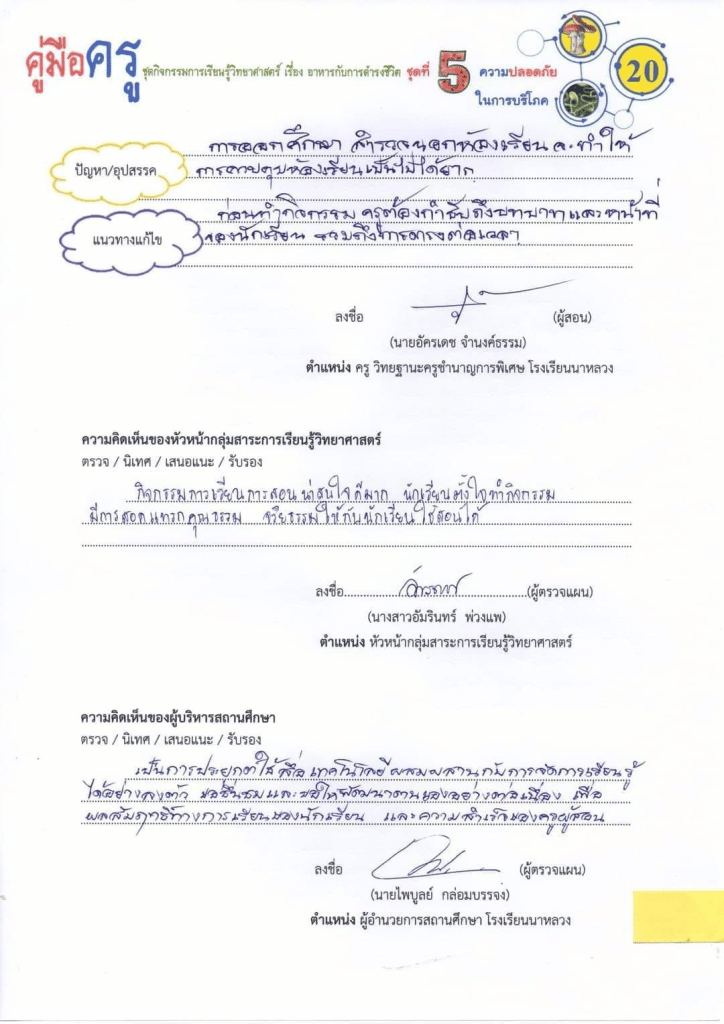 คู่มือครู ชุดกิจกรรมการเรียนรู้วิทยาศาสตร์ เรื่อง อาหารกับการดำรงชีวิต ชุดที่ 5 ความปลอดภัย
ในการบริโภค
20
ปัญหา/อุปสรรค
การออกศึกษา สำรวจนอกห้องเรียน จะทำให้
การควบคุมห้องเรียนเป็นไปได้ยาก
แนวทางแก้ไข
ก่อนทำกิจกรรม ครูต้องกำชับถึงบทบาทและหน้าที่
ของนักเรียน รวมถึงการตรงต่อเวลา
ลงชื่อ (ผู้สอน)
(นายอัครเดช จำนงค์ธรรม)
ตำแหน่ง ครู วิทยฐานะครูชำนาญการพิเศษ โรงเรียนนาหลวง
ความคิดเห็นของหัวหน้ากลุ่มสาระการเรียนรู้วิทยาศาสตร์
ตรวจ / นิเทศ / เสนอแนะ / รับรอง
กิจกรรมการเรียนการสอนน่าสนใจดีมาก นักเรียนตั้งใจทำกิจกรรม
มีการสอดแทรกคุณธรรม จริยธรรมให้กับนักเรียน ใช้สอนได้
ลงชื่อ (ผู้ตรวจแผน)
(นางสาวอัมรินทร์ พ่วงแพ)
ตำแหน่ง หัวหน้ากลุ่มสาระการเรียนรู้วิทยาศาสตร์
ความคิดเห็นของผู้บริหารสถานศึกษา
ตรวจ / นิเทศ / เสนอแนะ / รับรอง
เป็นการประยุกต์ใช้สื่อ เทคโนโลยีผสมผสานกับการจัดการเรียนรู้
ได้อย่างลงตัว ขอชื่นชมและขอให้พัฒนางานของอย่างต่อเนื่อง เพื่อ
ผลสัมฤทธิ์ทางการเรียนของนักเรียน และความสำเร็จของครูผู้สอน
ลงชื่อ (ผู้ตรวจแผน)
(นายไพบูลย์ กล่อมบรรจง)
ตำแหน่ง ผู้อำนวยการสถานศึกษา โรงเรียนนาหลวง